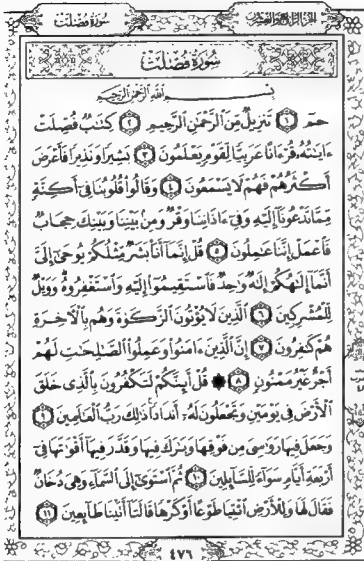 سُورَةُ فُصِّلَتْ
الجُزْءُ الرَّابِعُ وَالعِشْرُونَ
سُورَةُ فُصِّلَتْ
بِسْمِ اللَّهِ الرَّحْمَٰنِ الرَّحِيمِ
حمٓ ١ تَنزِيلٌ مِّنَ ٱلرَّحْمَٰنِ ٱلرَّحِيمِ ٢ كِتَٰبٌ فُصِّلَتْ
ءَايَٰتُهُۥ قُرْءَانًا عَرَبِيًّا لِّقَوْمٍ يَعْلَمُونَ ٣ بَشِيرًا وَنَذِيرًا فَأَعْرَضَ
أَكْثَرُهُمْ فَهُمْ لَا يَسْمَعُونَ ٤ وَقَالُوا۟ قُلُوبُنَا فِىٓ أَكِنَّةٍ
مِّمَّا تَدْعُونَآ إِلَيْهِ وَفِىٓ ءَاذَانِنَا وَقْرٌ وَمِنۢ بَيْنِنَا وَبَيْنِكَ حِجَابٌ
فَٱعْمَلْ إِنَّنَا عَٰمِلُونَ ٥ قُلْ إِنَّمَآ أَنَا۠ بَشَرٌ مِّثْلُكُمْ يُوحَىٰٓ إِلَىَّ
أَنَّمَآ إِلَٰهُكُمْ إِلَٰهٌ وَٰحِدٌ فَٱسْتَقِيمُوٓا۟ إِلَيْهِ وَٱسْتَغْفِرُوهُ وَوَيْلٌ
لِّلْمُشْرِكِينَ ٦ ٱلَّذِينَ لَا يُؤْتُونَ ٱلزَّكَوٰةَ وَهُم بِٱلْءَاخِرَةِ
هُمْ كَٰفِرُونَ ٧ إِنَّ ٱلَّذِينَ ءَامَنُوا۟ وَعَمِلُوا۟ ٱلصَّٰلِحَٰتِ لَهُمْ
أَجْرٌ غَيْرُ مَمْنُونٍ ٨ ۞ قُلْ أَئِنَّكُمْ لَتَكْفُرُونَ بِٱلَّذِى خَلَقَ
ٱلْأَرْضَ فِى يَوْمَيْنِ وَتَجْعَلُونَ لَهُۥٓ أَندَادًا ذَٰلِكَ رَبُّ ٱلْعَٰلَمِينَ ٩
وَجَعَلَ فِيهَا رَوَٰسِىَ مِن فَوْقِهَا وَبَٰرَكَ فِيهَا وَقَدَّرَ فِيهَآ أَقْوَٰتَهَا فِىٓ
أَرْبَعَةِ أَيَّامٍ سَوَآءً لِّلسَّآئِلِينَ ١٠ ثُمَّ ٱسْتَوَىٰٓ إِلَى ٱلسَّمَآءِ وَهِىَ دُخَانٌ
فَقَالَ لَهَا وَلِلْأَرْضِ ٱئْتِيَا طَوْعًا أَوْ كَرْهًا قَالَتَآ أَتَيْنَا طَآئِعِينَ ١١
٤٧٦